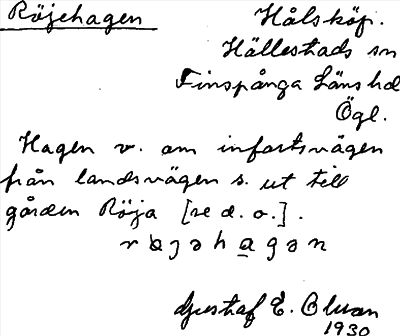 Röjehagen Hålsköp.
Hällestads sn
Finspånga Länshd
Ögl.
Hagen v. om infartsvägen
från landsvägen s. ut till
gården Röja [se d. o.].
Gustaf E. Olson
1930